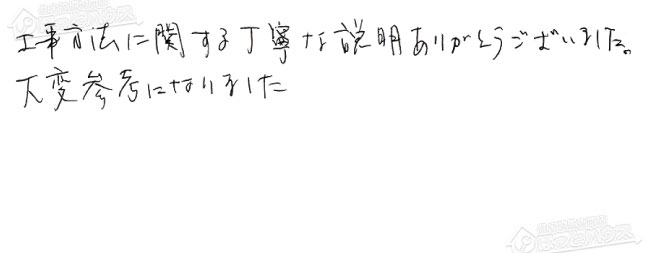 工事方法に関する丁寧な説明ありがとうございました。
大変参考になりました